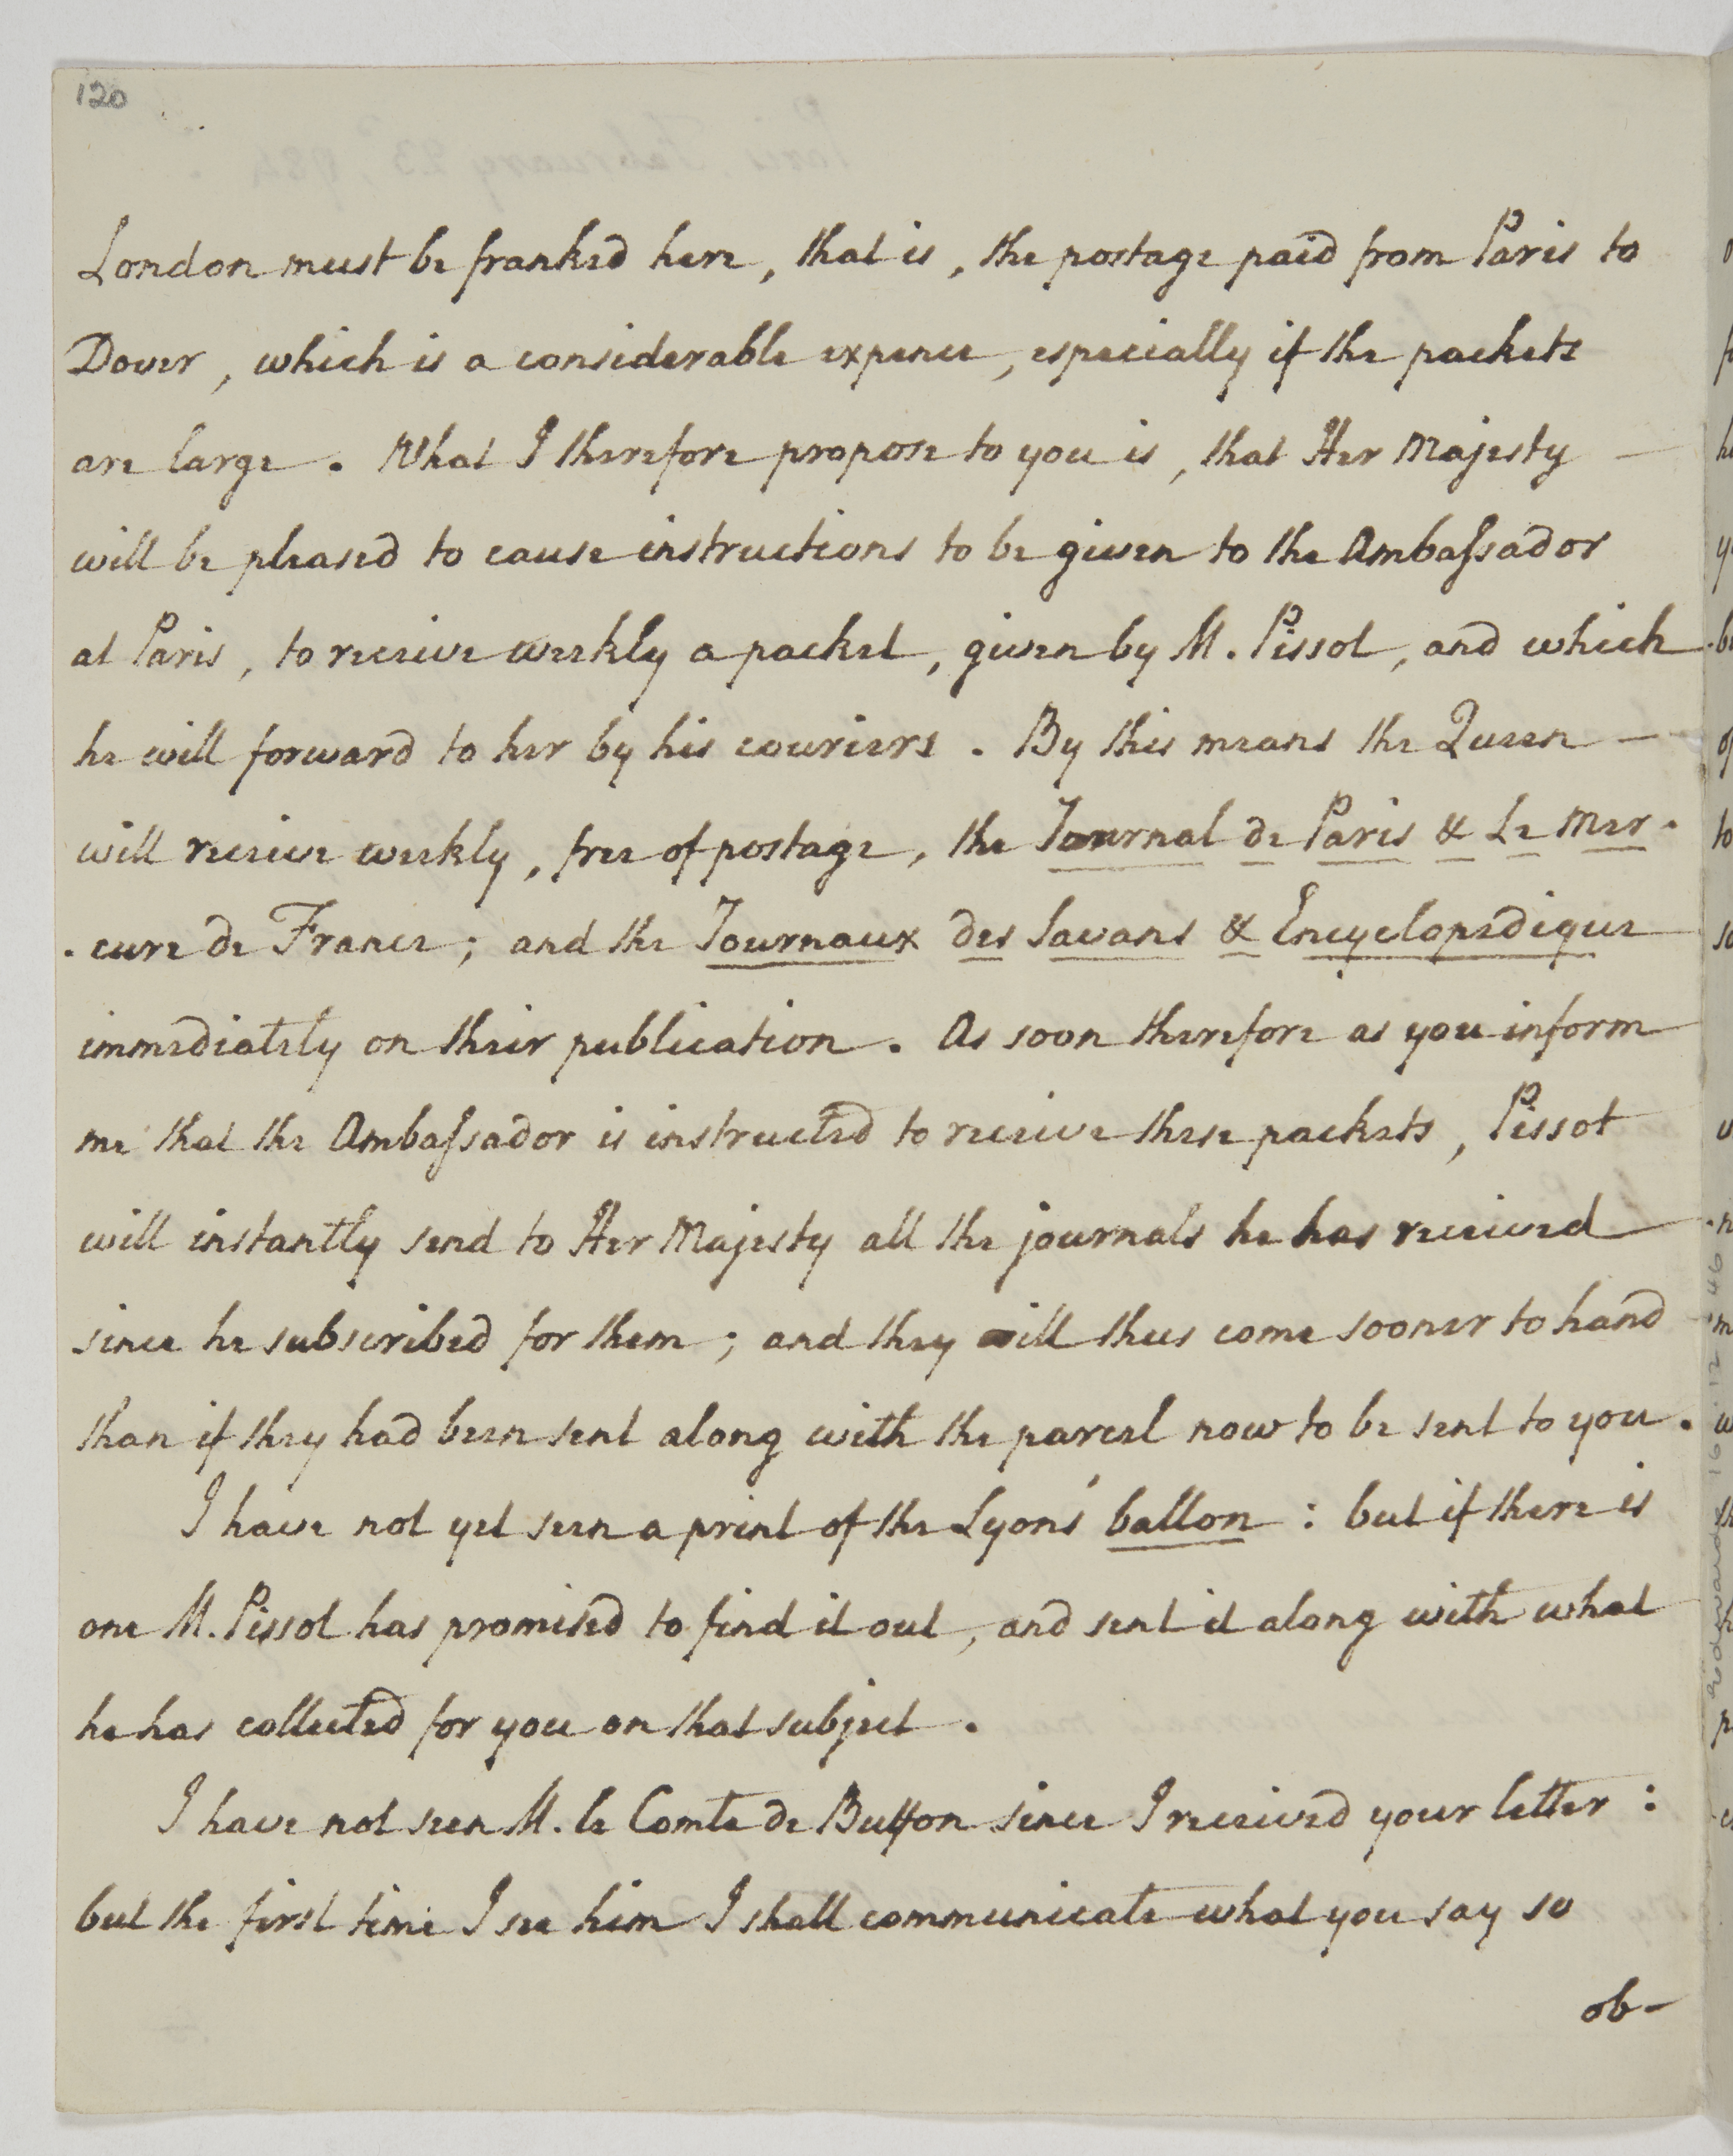 120
London must be franked here, that is, the postage paid from Paris to
Dover, which is a considerable expence, especially if the packets
are large. What I therefore propose to you is, that Her Majesty —
will be pleased to cause instructions to be given to the Ambaſsador
at Paris, to receive weekly a packet, given by M. Pissot, and which
he will forward to her by his couriers. By this means the Queen —
will receive weekly, free of postage, the Journal de Paris & Le Mer-
-cure de France; and the Journaux des Savans & Encyclopedique
immediately on their publication. As soon therefore as you inform
me that the Ambaſsador is instructed to receive these packets, Pissot
will instantly send to Her Majesty all the journals he has received
since he subscribed for them; and they will thus come sooner to hand
than if they had been sent along with the parcel now to be sent to you.
I have not yet seen a print of the Lyons' ballon: but if there is
one M. Pissot has promised to find it out, and sent it along with what
he has collected for you on that subject.
I have not seen M. le Comte de Buffon since I received your letter:
but the first time I see him I shall communicate what you say so
ob-